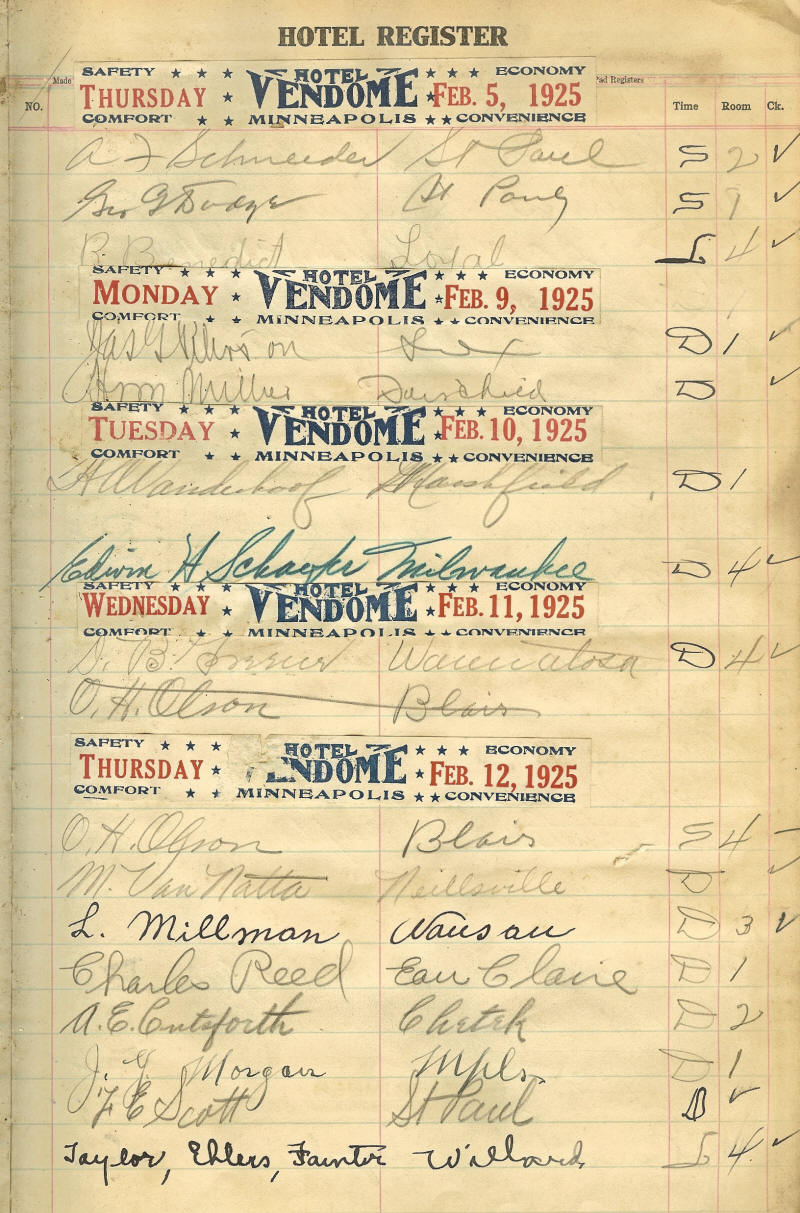 HOTEL REGISTER
Made Pad Registers
NO. Time Room Ck.
SAFETY ★ ★ ★ HOTEL ★ ★ ★ ECONOMY
THURSDAY ★ VENDOME ★ FEB. 5, 1925
COMFORT ★ ★ MINNEAPOLIS ★ ★ CONVENIENCE
A F Schneeder St Paul S 2 ✓
Geo G Dodge St Paul S 9 ✓
B. Benedict Loyal L 4 ✓
SAFETY ★ ★ ★ HOTEL ★ ★ ★ ECONOMY
MONDAY ★ VENDOME ★ FEB. 9, 1925
COMFORT ★ MINNEAPOLIS ★ ★ CONVENIENCE
Jas G D 1 ✓
Miller D ✓
SAFETY ★ ★ ★ HOTEL ★ ★ ★ ECONOMY
TUESDAY ★ VENDOME ★ FEB. 10, 1925
COMFORT ★ MINNEAPOLIS ★ ★ CONVENIENCE
Vanderhoof Marshfield D 1
Edwin H Schaefer Milwaukee D 4 ✓
SAFETY ★ ★ ★ HOTEL ★ ★ ★ ECONOMY
WEDNESDAY ★ VENDOME ★ FEB. 11, 1925
COMFORT ★ MINNEAPOLIS ★ ★ CONVENIENCE
D. B. Wauwatosa D 4 ✓
O. H. Olson Blair
SAFETY ★ ★ ★ HOTEL ★ ★ ★ ECONOMY
THURSDAY ★ VENDOME ★ FEB. 12, 1925
COMFORT ★ ★ MINNEAPOLIS ★ ★ CONVENIENCE
O. H. Olson Blair S 4
M. Van Natta Neillsville D ✓
L. Millman Wausau D 3 ✓
Charles Reed Eau Claire D 1
A. E. Cutsforth Chetek D 2
J. Morgan Mpls. D 1
F E Scott St Paul D ✓
Taylor, Ehlers, Fainter Willard L 4 ✓